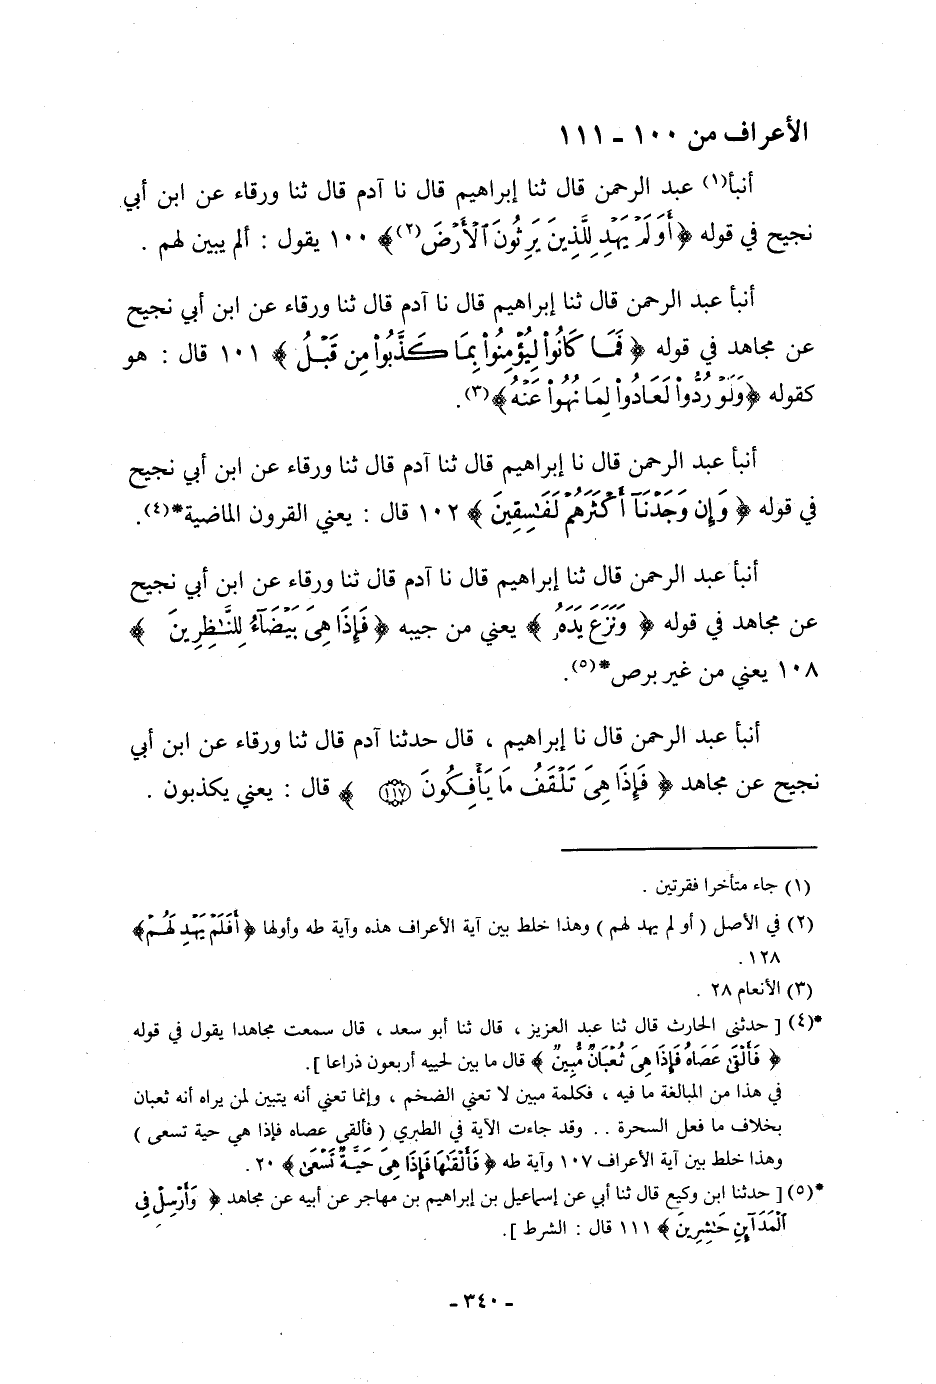 الأعراف من ١٠٠ ـ ١١١
أنبأ(١) عبد الرحمن قال ثنا إبراهيم قال نا آدم قال ثنا ورقاء عن ابن أبي
نجيح في قوله ﴿أَوَلَمْ يَهْدِ لِلَّذِينَ يَرِثُونَ ٱلْأَرْضَ(٢)﴾ ١٠٠ يقول : ألم يبين لهم .
أنبأ عبد الرحمن قال ثنا إبراهيم قال نا آدم قال ثنا ورقاء عن ابن أبي نجيح
عن مجاهد في قوله ﴿ فَمَا كَانُوا۟ لِيُؤْمِنُوا۟ بِمَا كَذَّبُوا۟ مِن قَبْلُ ﴾ ١٠١ قال : هو
كقوله ﴿وَلَوْ رُدُّوا۟ لَعَادُوا۟ لِمَا نُهُوا۟ عَنْهُ﴾(٣).
أنبأ عبد الرحمن قال نا إبراهيم قال ثنا آدم قال ثنا ورقاء عن ابن أبي نجيح
في قوله ﴿ وَإِن وَجَدْنَآ أَكْثَرَهُمْ لَفَـٰسِقِينَ ﴾ ١٠٢ قال : يعني القرون الماضية*(٤).
أنبأ عبد الرحمن قال ثنا إبراهيم قال نا آدم قال ثنا ورقاء عن ابن أبي نجيح
عن مجاهد في قوله ﴿ وَنَزَعَ يَدَهُۥ ﴾ يعني من جيبه ﴿ فَإِذَا هِىَ بَيْضَآءُ لِلنَّـٰظِرِينَ ﴾
١٠٨ يعني من غير برص*(٥).
أنبأ عبد الرحمن قال نا إبراهيم ، قال حدثنا آدم قال ثنا ورقاء عن ابن أبي
نجيح عن مجاهد ﴿ فَإِذَا هِىَ تَلْقَفُ مَا يَأْفِكُونَ ١١٧ ﴾ قال : يعني يكذبون .
(١) جاء متأخرا فقرتين .
(٢) في الأصل ( أو لم يهد لهم ) وهذا خلط بين آية الأعراف هذه وآية طه وأولها ﴿ أَفَلَمْ يَهْدِ لَهُمْ﴾
١٢٨ .
(٣) الأنعام ٢٨ .
*(٤) [ حدثني الحارث قال ثنا عبد العزيز ، قال ثنا أبو سعد ، قال سمعت مجاهدا يقول في قوله
﴿ فَأَلْقَىٰ عَصَاهُ فَإِذَا هِىَ ثُعْبَانٌ مُّبِينٌ ﴾ قال ما بين لحييه أربعون ذراعا ].
في هذا من المبالغة ما فيه ، فكلمة مبين لا تعني الضخم ، وإنما تعني أنه يتبين لمن يراه أنه ثعبان
بخلاف ما فعل السحرة .. وقد جاءت الآية في الطبري ( فألقى عصاه فإذا هي حية تسعى )
وهذا خلط بين آية الأعراف ١٠٧ وآية طه ﴿ فَأَلْقَىٰهَا فَإِذَا هِىَ حَيَّةٌ تَسْعَىٰ ﴾ ٢٠ .
*(٥) [ حدثنا ابن وكيع قال ثنا أبي عن إسماعيل بن إبراهيم بن مهاجر عن أبيه عن مجاهد ﴿ وَأَرْسِلْ فِى
ٱلْمَدَآئِنِ حَـٰشِرِينَ ﴾ ١١١ قال : الشرط ].
ـ ٣٤٠ ـ